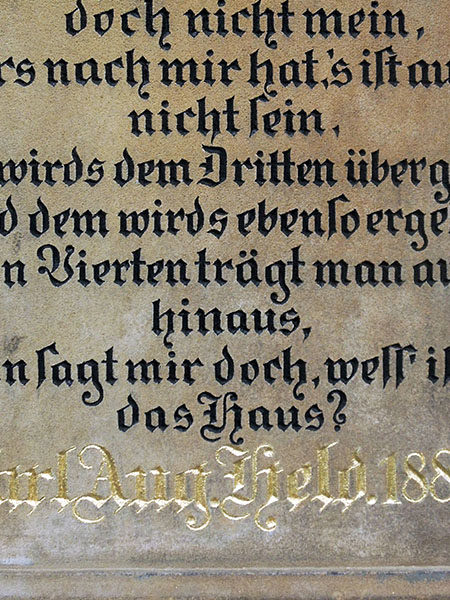 doch nicht mein,
rs nach mir hat,'s ist au
nicht sein,
wirds dem Dritten überg
d dem wirds ebenso erge
n Vierten trägt man au
hinaus,
n sagt mir doch, wess' i
das Haus?
arl Aug. Held. 188